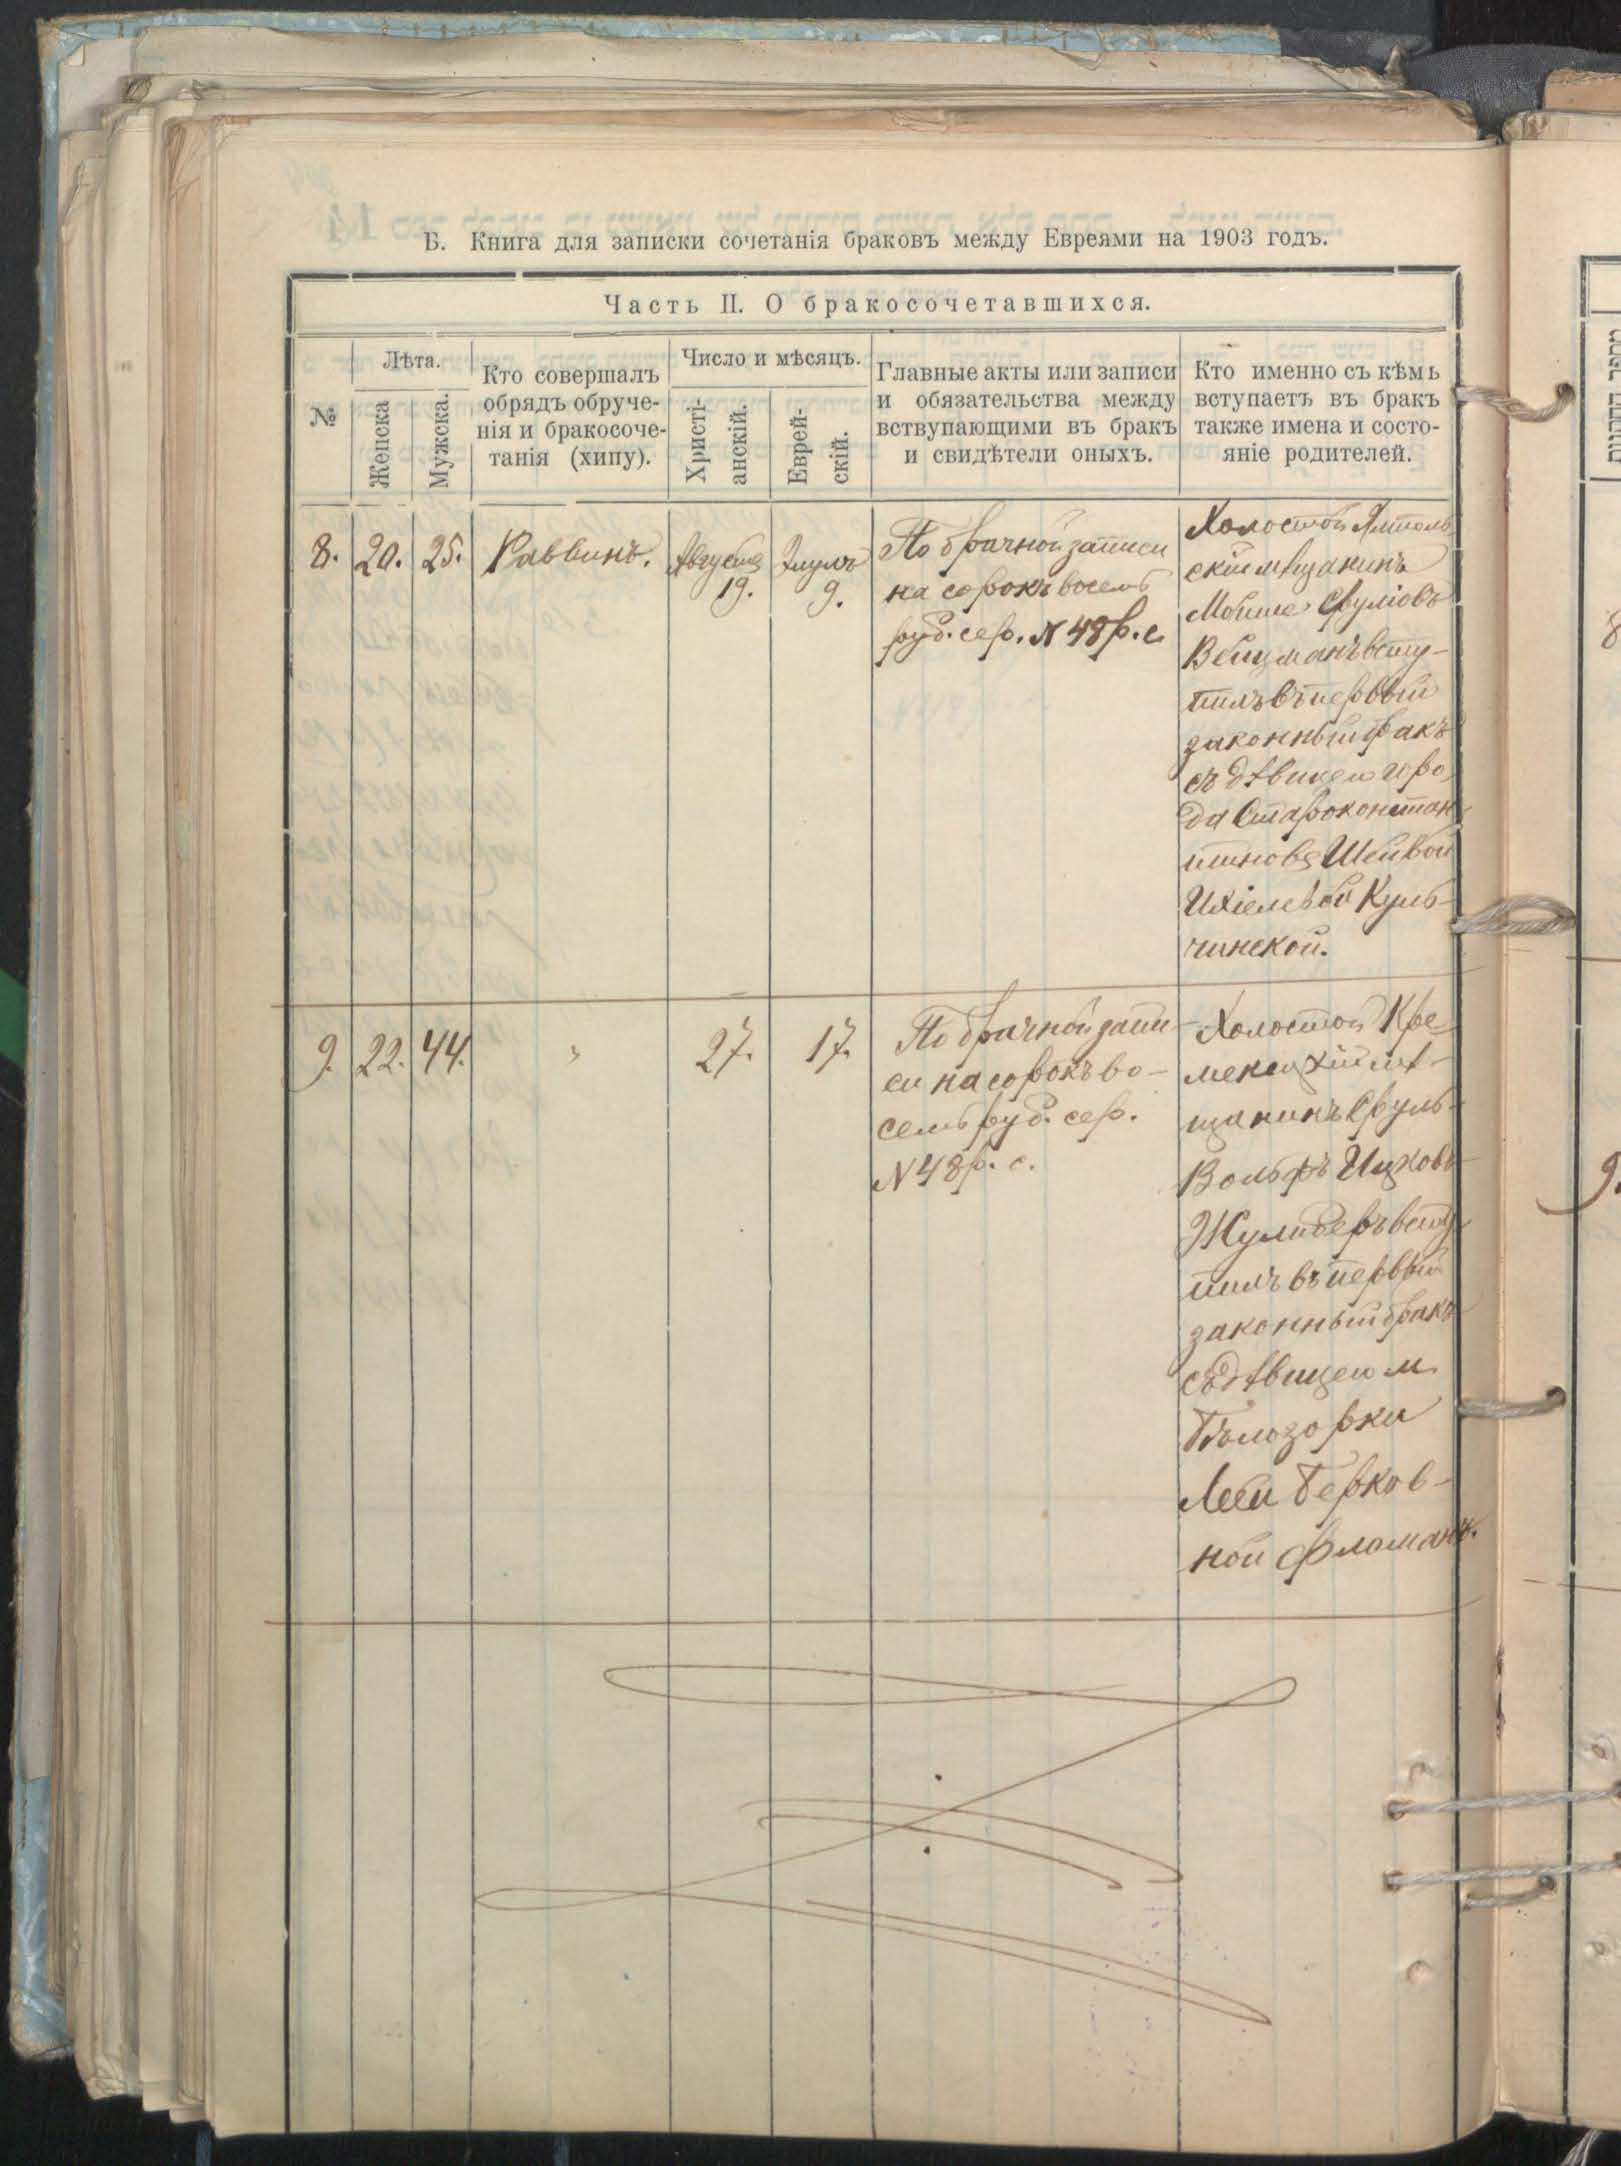 Б. Книга для записки сочетанія браковъ между Евреями на 1903 годъ.
Часть II. О бракосочетавшихся.
№
Лѣта.
Женска
Мужска.
Кто совершалъ
обрядъ обруче-
нія и бракосоче-
танія (хипу).
Число и мѣсяцъ.
Христі-
анскій.
Еврей-
скій.
Главные акты или записи
и обязательства между
вствупающими въ бракъ
и свидѣтели оныхъ.
Кто именно съ кѣмъ
вступаетъ въ бракъ
также имена и состо-
яніе родителей.
8.
20.
25.
Раввинъ.
Августа
19.
Элулъ
9.
По брачной записи
на сорокъ восемь
руб. сер. N 48 р. с.
Холостой Ямполь
скій мѣщанинъ
Мойше Сруліовъ
Вейцманъ всту-
пилъ въ первый
законный бракъ
съ дѣвицею горо
да Староконстан
тинова Шейвой
Ихіелевой Куль-
чинской.
9.
22.
44.
"
27.
17.
По брачной запи-
си на сорокъ во-
семь руб. сер.
N 48 р. с.
Холостой Кре
менецкій мѣ-
щанинъ Сруль-
Вольфъ Ицковъ
Жулидеръ всту
пилъ въ первый
законный бракъ
съ дѣвицею м.
Бѣлозорки
Леей Берков-
ной Фломанъ.
8
9.